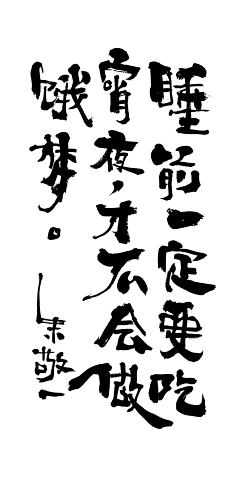 睡前一定要吃
宵夜，才不会做
饿梦。
朱敬一